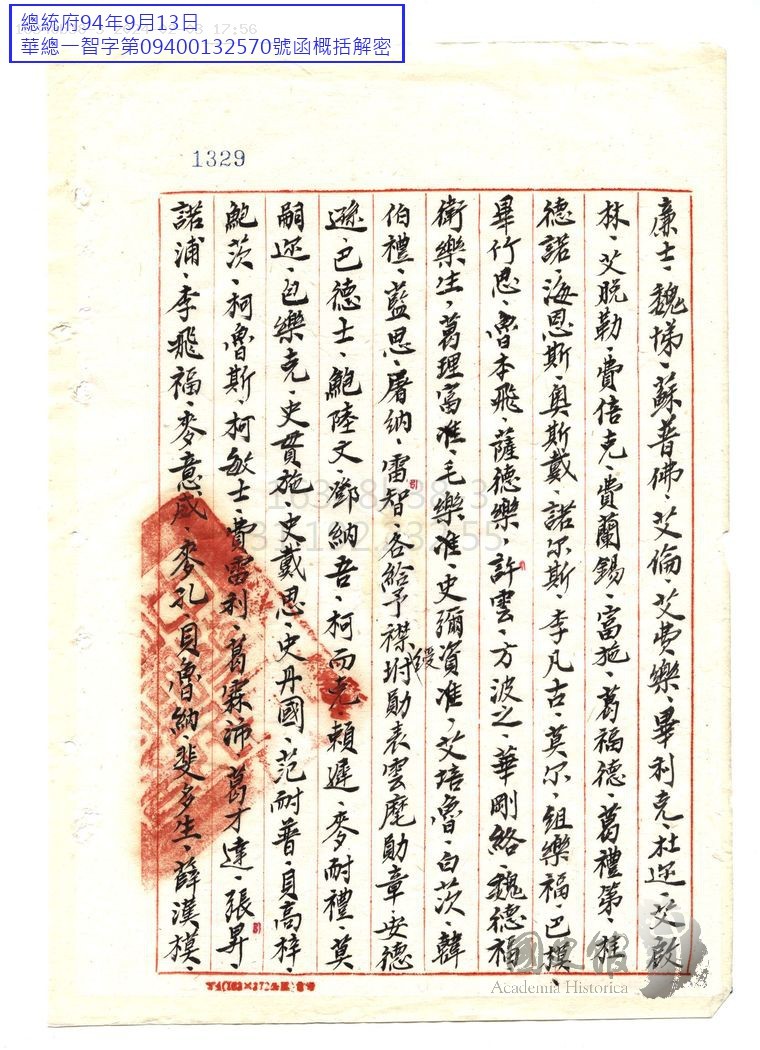 總統府94年9月13日
華總一智字第09400132570號函概括解密
1329
廉士、魏悌、蘇普佛、艾倫、艾費樂、畢利克、杜邇、艾啟
林、艾脫勒、費倍克、費蘭錫、富施、葛福德、葛禮第、桂
德諾、海恩斯、奧斯戴、諾尔斯 李凡古、莫尔、紐樂福、巴模、
畢竹思、魯本飛、薩德樂、許雲、方波之、華剛絡、魏德福
衛樂生、葛理富准、毛樂准、史彌資准、艾培魯、白茨 韓
伯禮、藍思、屠納、雷智、各給予襟綬坿勛表雲麾勛章、安德
遜、巴德士、鮑陸文、鄧納吾、柯而克、賴遲、麥耐禮、莫
嗣邇、包樂克、史貫施、史戴思、史丹國、范耐普、貝高梓、
鮑茨、柯魯斯、柯敏士、費雷利、葛霖沛 葛才達、張昇、
諾浦、李飛福、麥意成、麥孔、貝魯納、斐多生、薛漢模、
國史館
Academia Historica